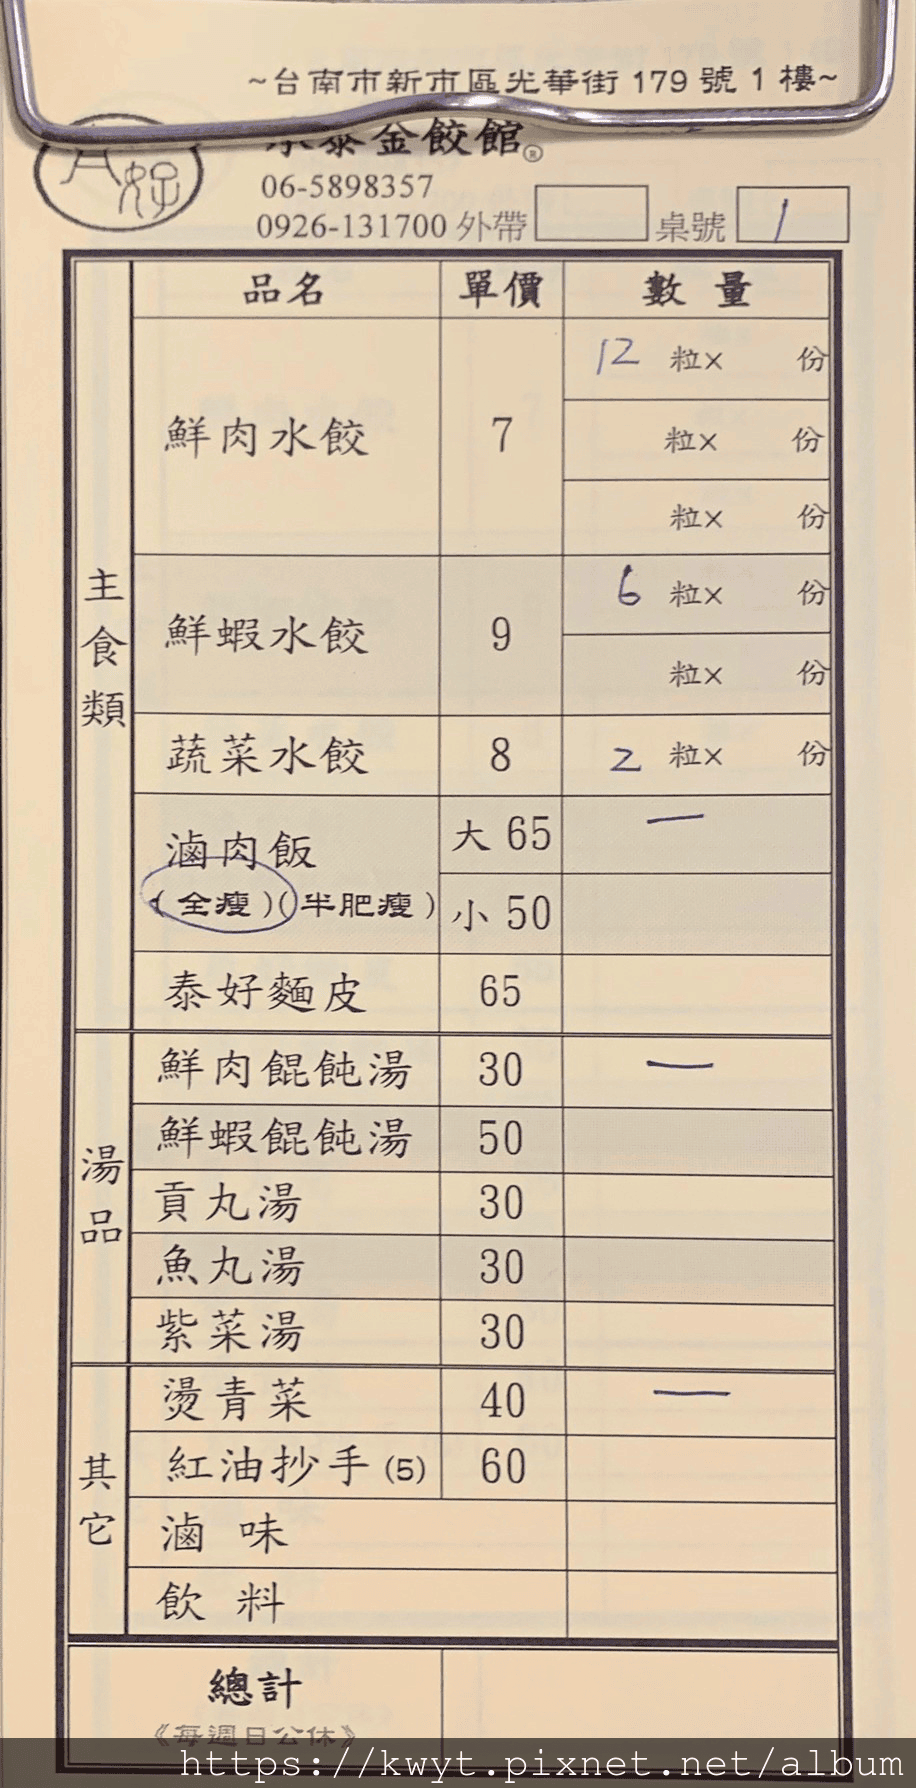 ~台南市新市區光華街179號1樓~
泰金餃館®
好
06-5898357
0926-131700 外帶 桌號 1
品名 單價 數量
主食類
鮮肉水餃 7 12 粒× 份
粒× 份
粒× 份
鮮蝦水餃 9 6 粒× 份
粒× 份
蔬菜水餃 8 2 粒× 份
滷肉飯 大 65 一
(全瘦)(半肥瘦) 小 50
泰好麵皮 65
湯品
鮮肉餛飩湯 30 一
鮮蝦餛飩湯 50
貢丸湯 30
魚丸湯 30
紫菜湯 30
其它
燙青菜 40 一
紅油抄手(5) 60
滷味
飲料
總計
《每週日公休》
https://kwyt.pixnet.net/album